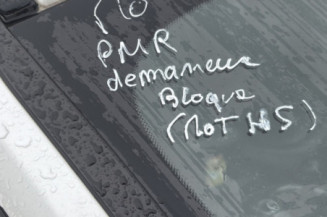 PMR
demarreur
Bloque
(MOT HS)